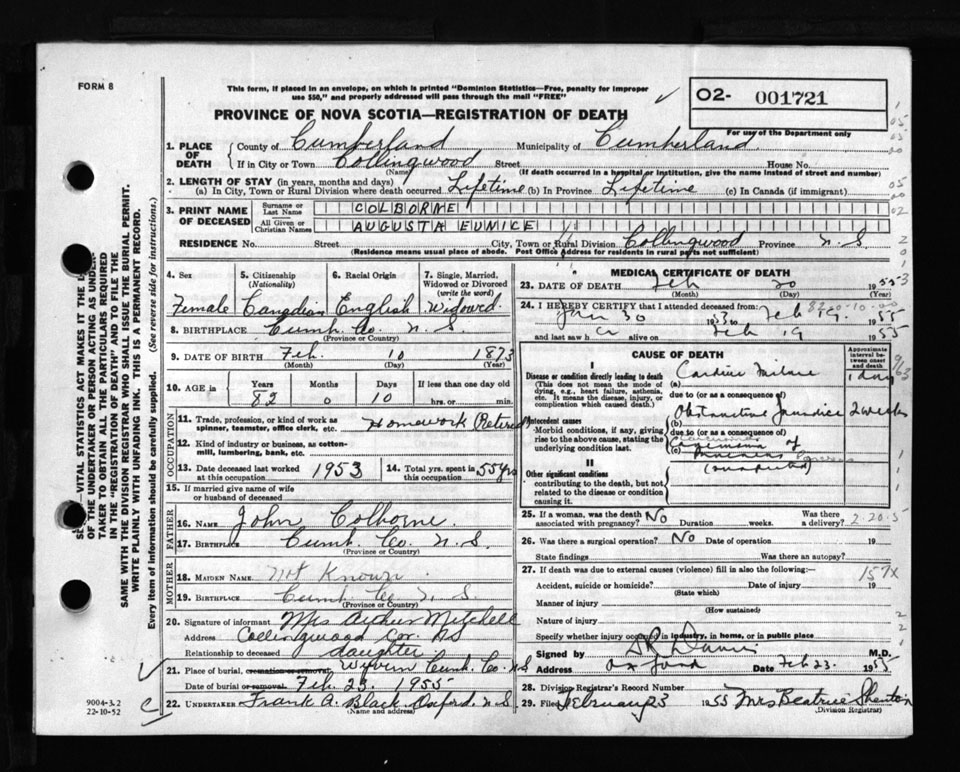 FORM 8
This form, if placed in an envelope, on which is printed "Dominion Statistics—Free, penalty for improper
use $50," and properly addressed will pass through the mail "FREE"
O2- 001721
PROVINCE OF NOVA SCOTIA—REGISTRATION OF DEATH
For use of the Department only
1. PLACE OF DEATH
County of Cumberland Municipality of Cumberland
If in City or Town Collingwood Street House No.
(Name) (If death occurred in a hospital or institution, give the name instead of street and number)
2. LENGTH OF STAY (in years, months and days)
(a) In City, Town or Rural Division where death occurred Lifetime (b) In Province Lifetime (c) In Canada (if immigrant)
3. PRINT NAME OF DECEASED
Surname or Last Name COLBORNE
All Given or Christian Names AUGUSTA EUNICE
RESIDENCE No. Street City, Town or Rural Division Collingwood Province N.S.
(Residence means usual place of abode. Post Office Address for residents in rural parts not sufficient)
4. Sex Female
5. Citizenship (Nationality) Canadian
6. Racial Origin English
7. Single, Married, Widowed or Divorced (write the word) Widowed
8. BIRTHPLACE Cumb. Co. N.S.
(Province or Country)
9. DATE OF BIRTH Feb. 10 1873
(Month) (Day) (Year)
10. AGE in Years Months Days If less than one day old
82 0 10 hrs. or min.
OCCUPATION
11. Trade, profession, or kind of work as spinner, teamster, office clerk, etc. Homework Retired
12. Kind of industry or business, as cotton-mill, lumbering, bank, etc.
13. Date deceased last worked at this occupation 1953
14. Total yrs. spent in this occupation 55 yrs
15. If married give name of wife or husband of deceased
FATHER
16. NAME John Colborne.
17. BIRTHPLACE Cumb. Co. N.S.
(Province or Country)
MOTHER
18. MAIDEN NAME Not Known
19. BIRTHPLACE Cumb. Co. N.S.
(Province or Country)
20. Signature of informant Mrs Arthur Mitchell
Address Collingwood Cor. NS
Relationship to deceased daughter
21. Place of burial, cremation or removal Wyvern Cumb. Co. N.S
Date of burial or removal Feb. 23. 1955
22. UNDERTAKER Frank A. Black Oxford N.S
(Name and address)
MEDICAL CERTIFICATE OF DEATH
23. DATE OF DEATH Feb 20 1955
(Month) (Day) (Year)
24. I HEREBY CERTIFY that I attended deceased from:
Jan 30 1953 to Feb 19 1955
and last saw h er alive on Feb 19 1955
CAUSE OF DEATH
Approximate interval between onset and death
I
Disease or condition directly leading to death
(This does not mean the mode of dying, e.g., heart failure, asthenia, etc. It means the disease, injury, or complication which caused death.)
(a) Cardiac Failure 1 day
due to (or as a consequence of)
Antecedent causes
Morbid conditions, if any, giving rise to the above cause, stating the underlying condition last.
(b) Obstructive Jaundice 2 weeks
due to (or as a consequence of)
(c) of
(suspected)
II
Other significant conditions
contributing to the death, but not related to the disease or condition causing it.
25. If a woman, was the death associated with pregnancy? No Duration weeks. Was there a delivery?
2-20-5
26. Was there a surgical operation? No Date of operation 19
State findings Was there an autopsy?
27. If death was due to external causes (violence) fill in also the following:—
157X
Accident, suicide or homicide? Date of injury 19
(State which)
Manner of injury
(How sustained)
Nature of injury
Specify whether injury occurred in industry, in home, or in public place
Signed by M.D.
Address Oxford Date Feb 23. 1955
28. Division Registrar's Record Number
29. Filed February 23 1955 Mrs Beatrice Shenton
(Division Registrar)
VITAL STATISTICS ACT MAKES IT THE
OF THE UNDERTAKER OR PERSON ACTING AS UNDER-
TAKER TO OBTAIN ALL THE PARTICULARS REQUIRED
IN THE "REGISTRATION OF DEATH" AND TO FILE THE
SAME WITH THE DIVISION REGISTRAR WHO SHALL ISSUE THE BURIAL PERMIT.
WRITE PLAINLY WITH UNFADING INK. THIS IS A PERMANENT RECORD.
Every item of information should be carefully supplied. (See reverse side for instructions.)
9004-3.2
22-10-52